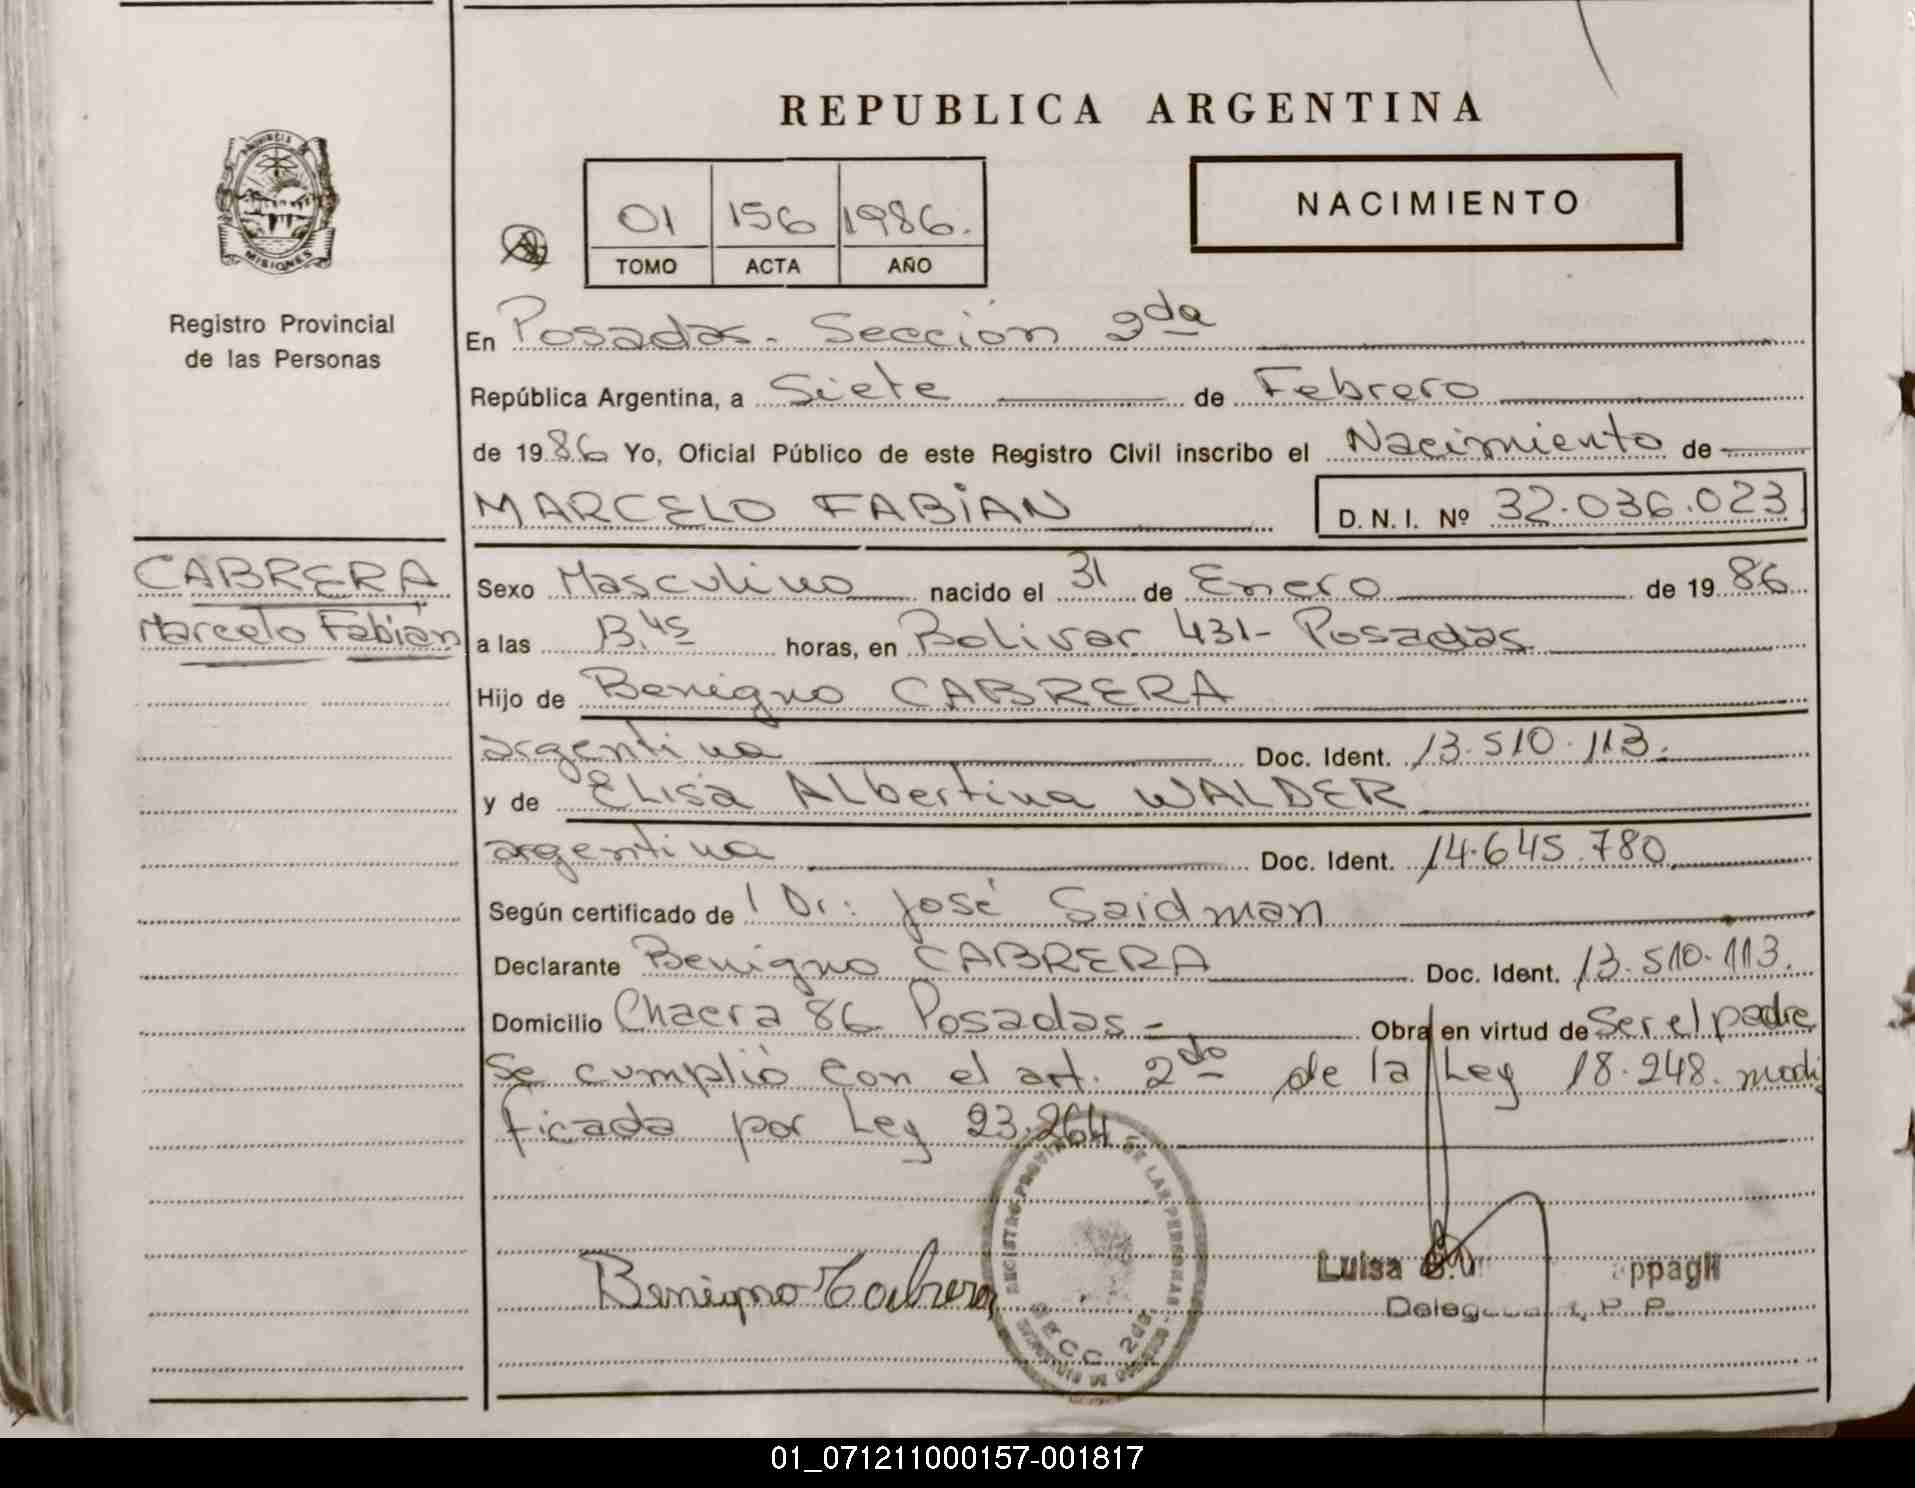 REPUBLICA ARGENTINA
PROVINCIA DE
MISIONES
Registro Provincial
de las Personas
01 156 1986.
TOMO ACTA AÑO
NACIMIENTO
En Posadas - Sección 2da
República Argentina, a Siete de Febrero
de 1986 Yo, Oficial Público de este Registro Civil inscribo el Nacimiento de
MARCELO FABIAN D.N.I. Nº 32.036.023
CABRERA
Marcelo Fabian
Sexo Masculino nacido el 31 de Enero de 1986
a las 13.45 horas, en Bolivar 431- Posadas
Hijo de Benigno CABRERA
argentina Doc. Ident. 13.510.113.
y de ELisa ALbertina WALDER
argentina Doc. Ident. 14.645.780
Según certificado de Dr: José Saidman
Declarante Benigno CABRERA Doc. Ident. 13.510.113.
Domicilio Chacra 86 Posadas - Obra en virtud de Ser el padre
Se cumplió con el art. 2do de la Ley 18.248. modi
ficada por Ley 23.264
REGISTRO PROVINCIAL DE LAS PERSONAS
SECC 2da.
Benigno Cabrera
Luisa
ppagli
01_071211000157-001817